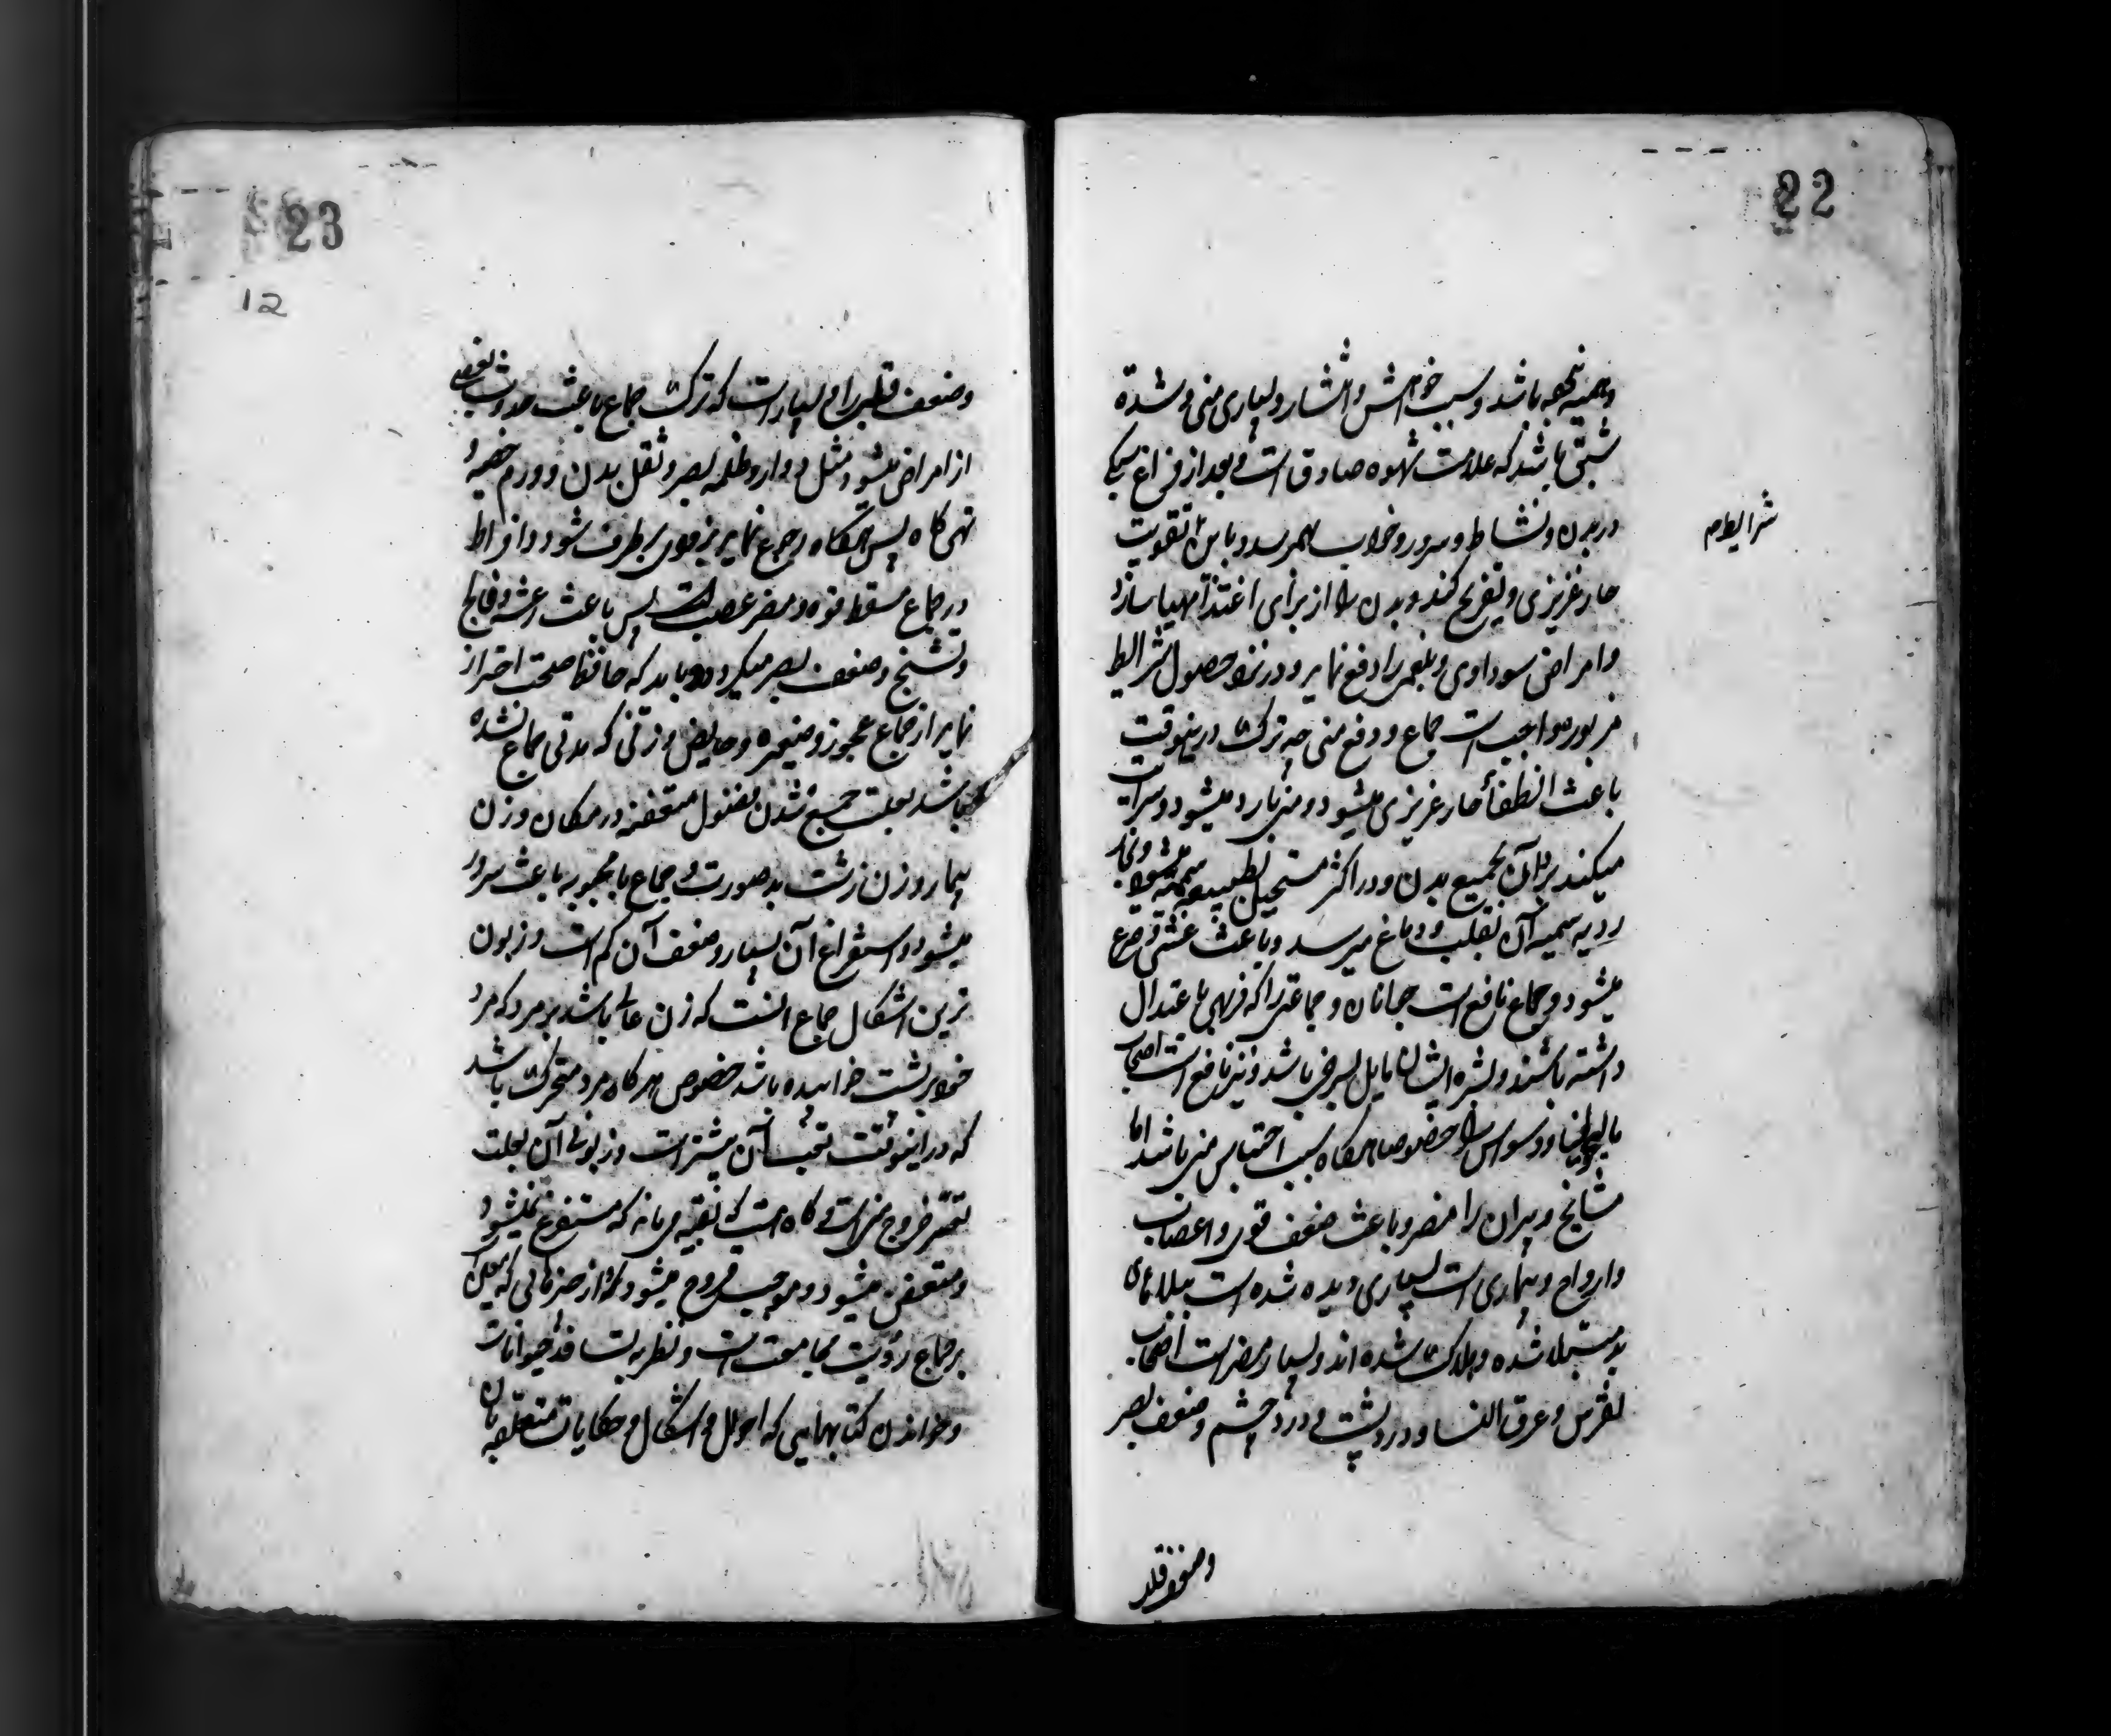 22
و سبب خواهش و انتشار و بسیاری منی و شدة
باشد که علامت شهوه صادق است و بعد از فراغ سبکی
در بدن و نشاط و سرور و خواب بهمرسد و باین تقویت
شرایط
حار غریزی و تفریح کند و بدن را از برای اغتذا مهیا سازد
و امراض سوداوی و بلغمی را دفع نماید و در نزد حصول شرایط
مزبوره واجب است جماع و دفع منی چه ترک در اینوقت
باعث انطفاء حار غریزی میشود و منی بارد میشود و سرایت
میکند برد آن بجمیع بدن و در اکثر مستحیل بطبیعه سمیه میشود و بخار
ردیه سمیه آن بقلب و دماغ میرسد و باعث غشی و صرع
میشود و جماع نافع است جوانان و جماعتی را که فربهی باعتدال
داشته باشند و بشره ایشان مایل بسرخی باشد و نیز نافع است اصحاب
مالیخولیا و وسواس را خصوصا هرگاه بسبب احتباس منی باشد اما
مشایخ و پیران را مضر و باعث ضعف قوی و اعصاب
و ارواح و بیماری است بسیاری دیده شده است ببلاهای
بد مبتلا شده و هلاک شده اند و بسیار مضر است اصحاب
نقرس و عرق النسا و درد پشت و درد چشم و ضعف بصر
و ضعف قلب
23
12
و ضعف قلب را و بسیار است که ترک جماع باعث حدوث بعضی
از امراض میشود مثل دوار و ظلمه بصر و ثقل بدن و ورم خصیه و
تهی کاه پس هرگاه رجوع نماید بزودی برطرف شود و افراط
در جماع مسقط قوه و مضر عصب است پس باعث رعشه و فالج
و تشنج و ضعف بصر میگردد و باید که حافظ صحت احتراز
نماید از جماع عجوز و صغیره و حایض و زنی که مدتی جماع نشده
باشد بعلت جمع شدن فضول متعفنه در مکان و زن
بیمار و زن زشت بد صورت و جماع با محبوبه باعث سرور
میشود و استفراغ آن بسیار و ضعف آن کم است و زبون
ترین اشکال جماع آنست که زن عالی باشد بر مرد که مرد
خود بر پشت خوابیده باشد خصوص هرگاه مرد متحرک باشد
که در اینوقت تعب آن بیشتر است و زبونی آن بعلت
تعسر خروج منی است و گاه هست که بقیه می ماند که مستفرغ نمیشود
و متعفن میشود و موجب قروح میشود و از چیزهائی که معین است
بر جماع رؤیت مجامعت است و نظر به تسافد حیوانات
و خواندن کتابهایی که احوال و اشکال و حکایات متعلقه بان